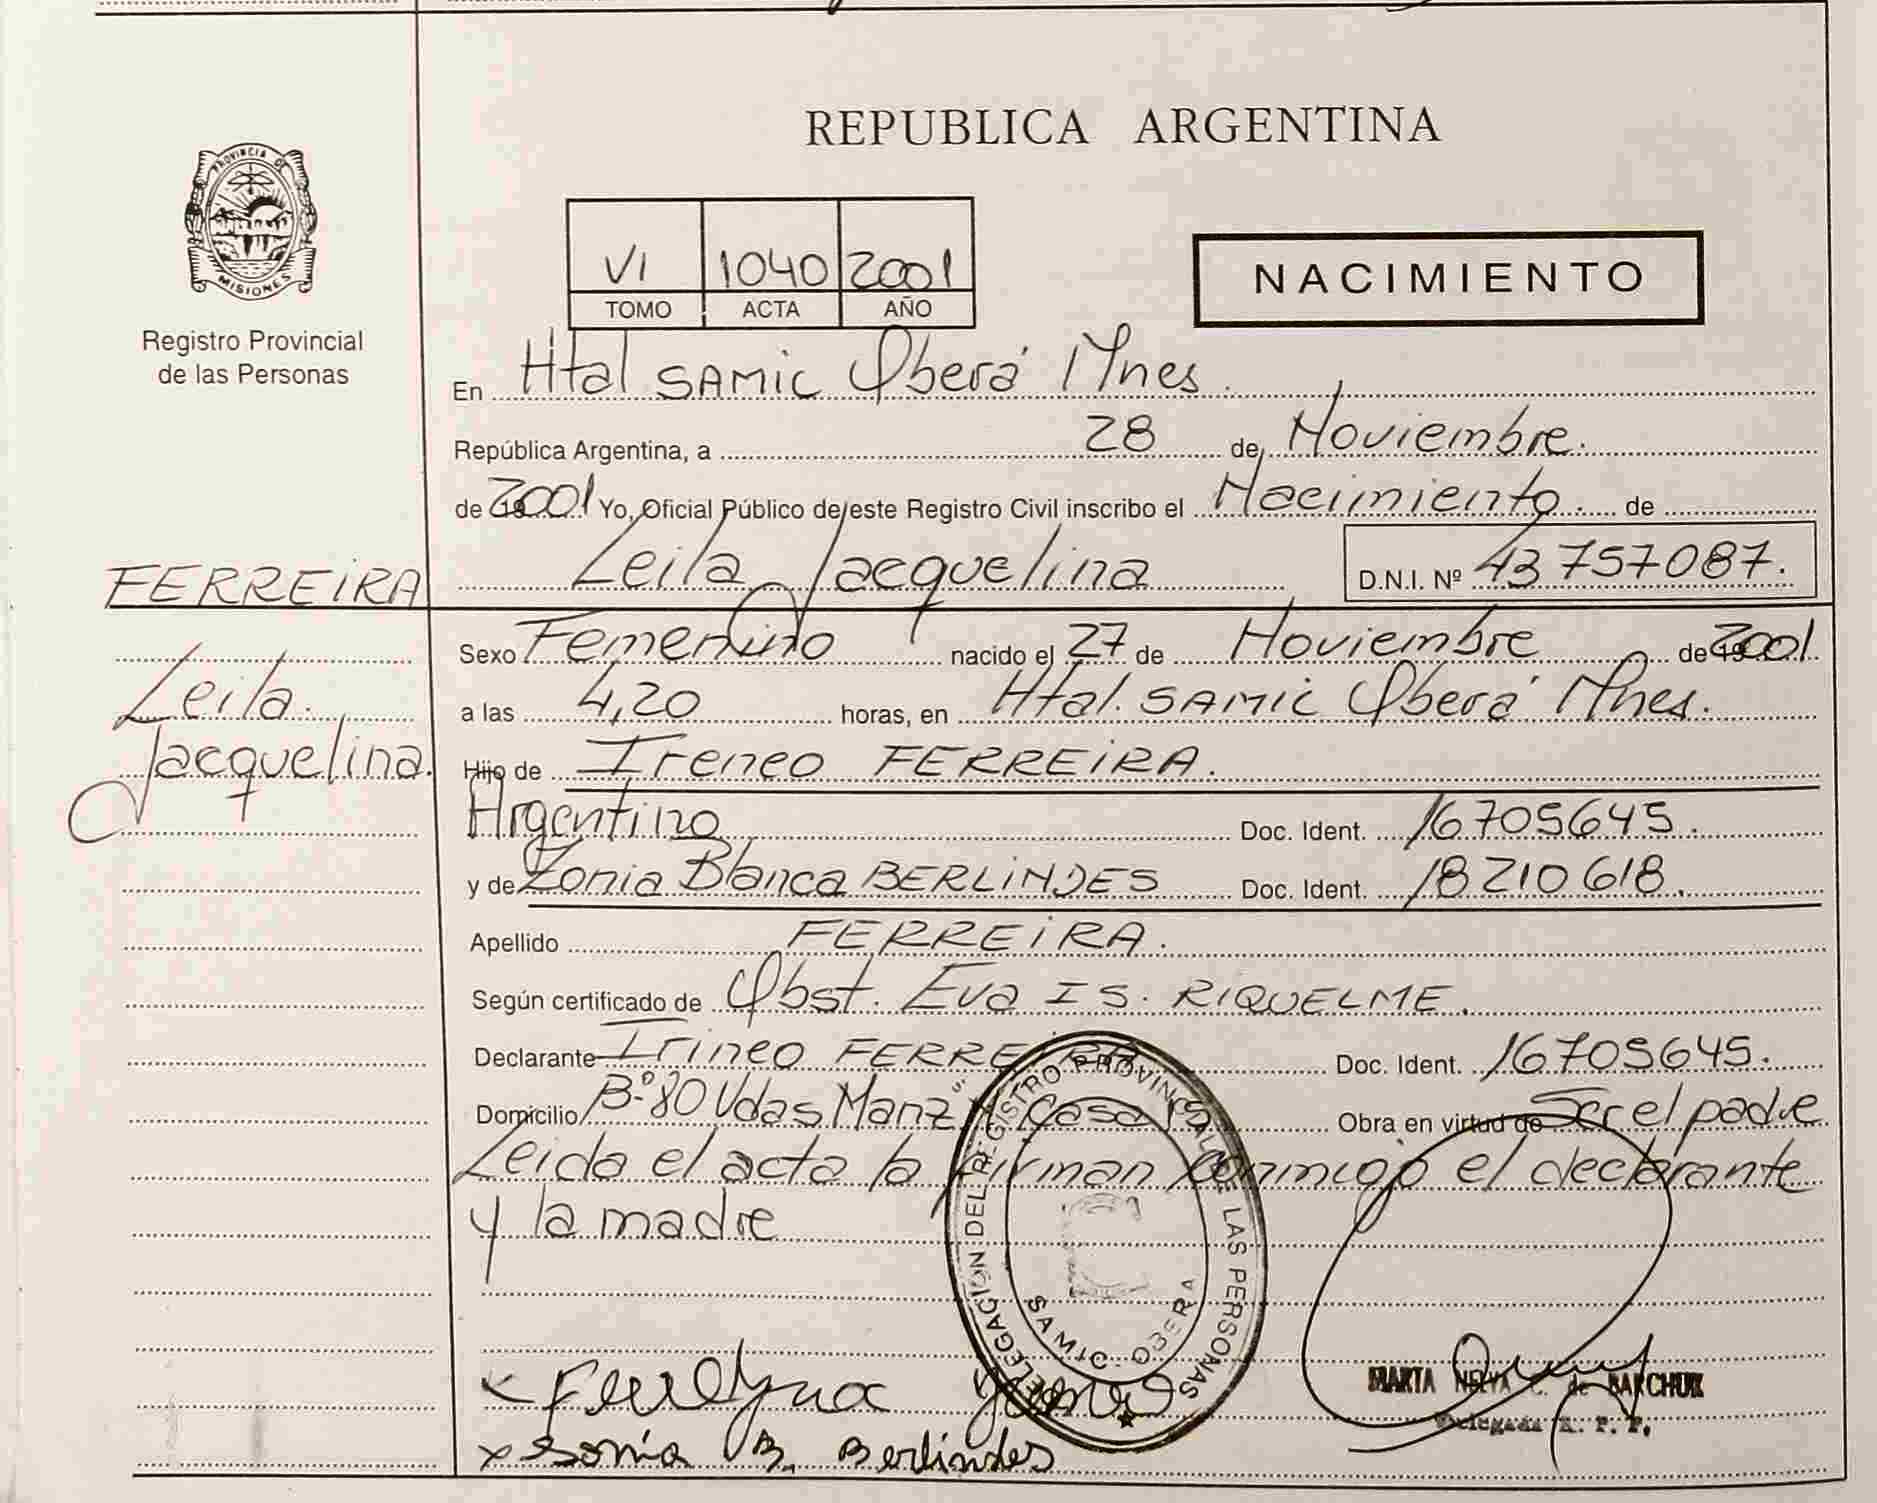 REPUBLICA ARGENTINA
PROVINCIA DE
MISIONES
Registro Provincial
de las Personas
VI 1040 2001
TOMO ACTA AÑO
NACIMIENTO
En Htal SAMIC Oberá Mnes.
República Argentina, a 28 de Noviembre.
de 2001 Yo, Oficial Público de este Registro Civil inscribo el Nacimiento. de
Leila Jacquelina D.N.I. Nº 43757087.
FERREIRA
Leila
Jacquelina.
Sexo Femenino nacido el 27 de Noviembre de 2001
a las 4,20 horas, en Htal. SAMIC Oberá Mnes.
Hijo de Ireneo FERREIRA.
Argentino Doc. Ident. 16705645.
y de Zonia Blanca BERLINDES Doc. Ident. 18210618.
Apellido FERREIRA.
Según certificado de Obst. Eva IS. RIQUELME.
Declarante Irineo FERREIRA Doc. Ident. 16705645.
Domicilio Bº 80 Vdas Manz Casa Obra en virtud de Ser el padre
Leida el acta la firman conmigo el declarante
y la madre
DELEGACION DEL REGISTRO PROVINCIAL DE LAS PERSONAS
SAMIC OBERA
x Ferreyra
MARTA NELVA C. de BARCHUK
Delegada R. P. P.
x Sonia B. Berlindes